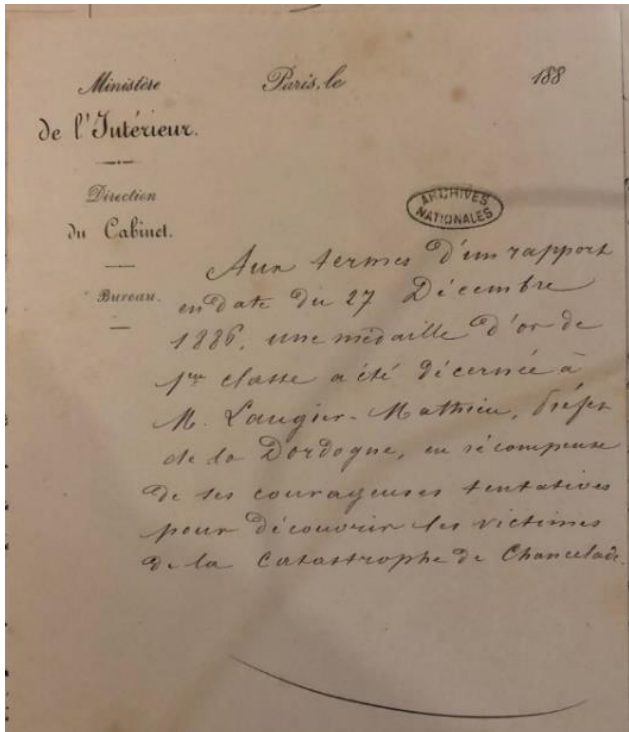 Ministère
de l'Intérieur.
Direction
du Cabinet.
Bureau.
Paris, le 188
ARCHIVES
NATIONALES
Aux termes d'un rapport
en date du 27 Décembre
1886, une médaille d'or de
1ère classe a été décernée à
M. Laugier-Mathieu, Préfet
de la Dordogne, en récompense
de ses courageuses tentatives
pour découvrir les victimes
de la Catastrophe de Chancelade.